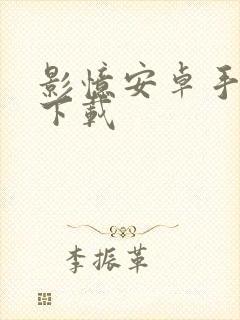 影憶安卓手
下載
李振革